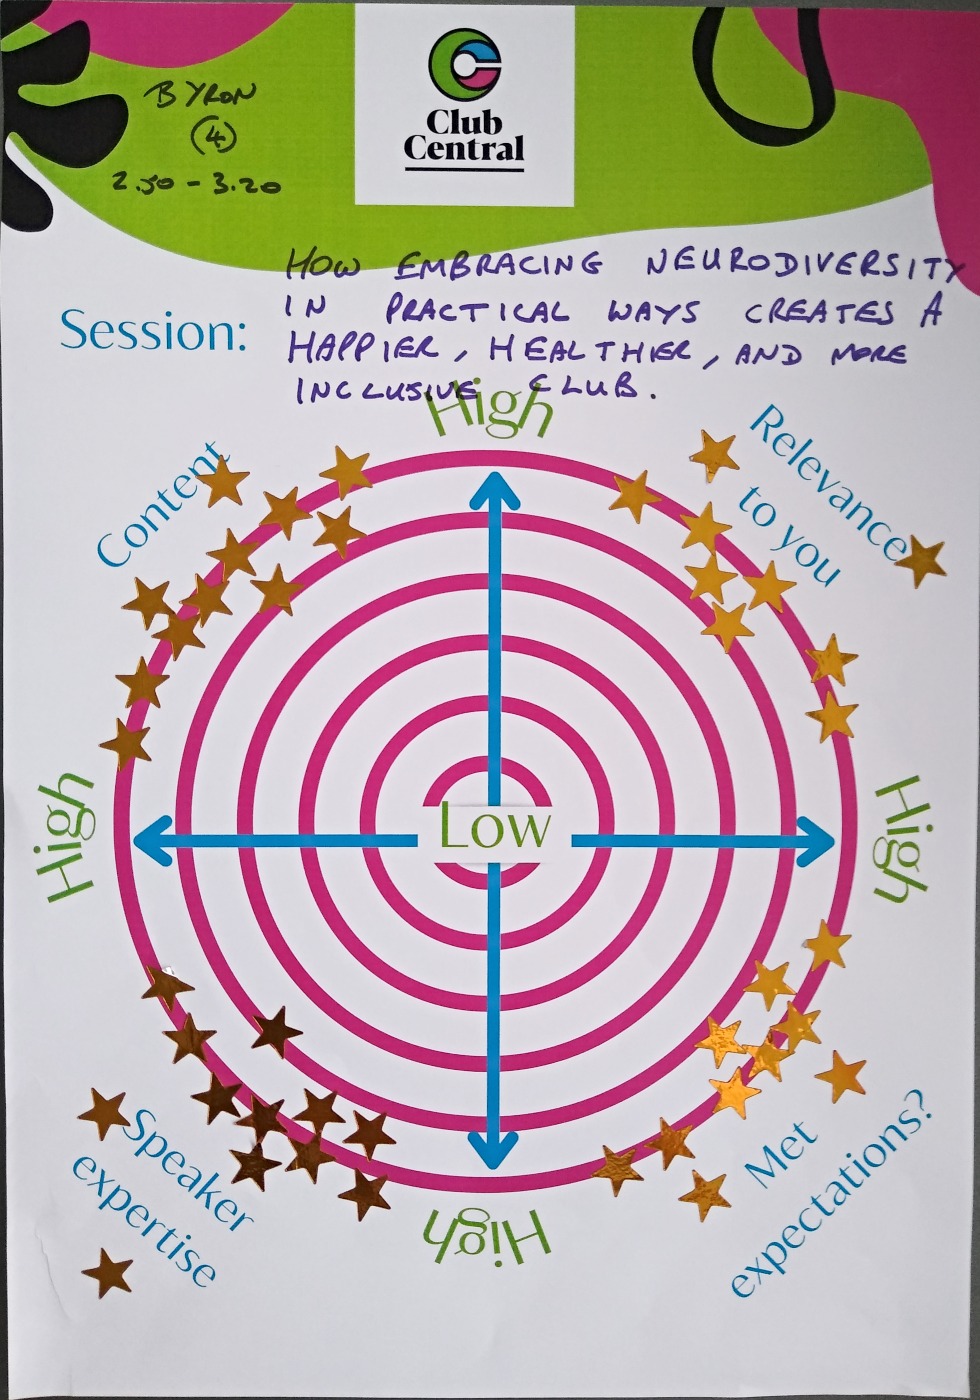 BYRON
(4)
2.50 - 3.20
Club
Central
Session:
HOW EMBRACING NEURODIVERSITY
IN PRACTICAL WAYS CREATES A
HAPPIER, HEALTHIER, AND MORE
INCLUSIVE CLUB.
High
Content
Relevance
to you
High
Low
High
Speaker
expertise
Met
expectations?
High